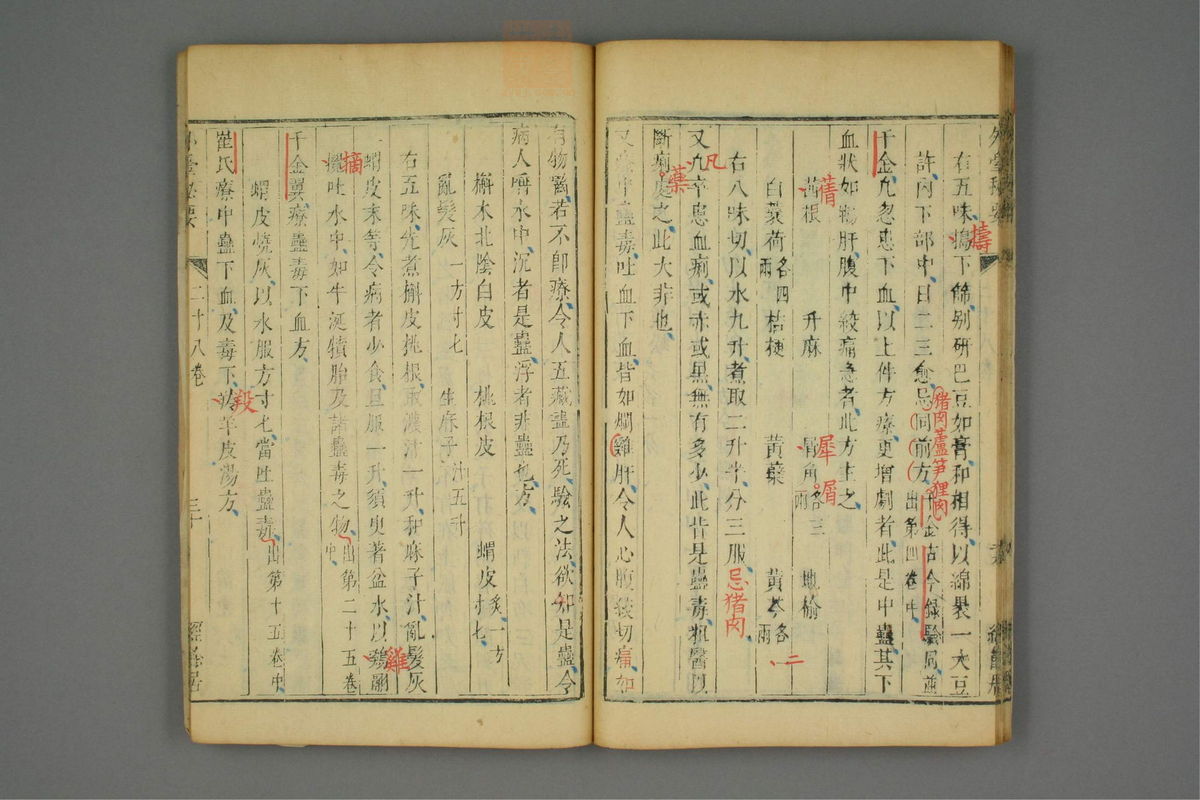 右五味搗下篩別研巴豆如膏和相得以綿裹一大豆
許內下部中日二三愈忌同前方千金古今錄驗同並出第四卷中
猪肉蘆笋狸肉
擣
千金凡忽患下血以上件方療更增劇者此是中蠱其下
血狀如鴨肝腹中絞痛急者此方主之
茜根 升麻 犀角各三兩 地榆
蒨
犀屑
白蘘荷各四兩 桔梗 黃蘗 黃芩各兩
二
右八味切以水九升煮取二升半分三服
忌猪肉
又凡卒患血痢或赤或黑無有多少此皆是蠱毒粗醫以
凡
斷痢處之此大非也
藥
又療中蠱毒吐血下血皆如爛雞肝令人心腹絞切痛如
有物嚙若不即療令人五藏盡乃死驗之法欲知是蠱令
病人唾水中沉者是蠱浮者非蠱也方
檞木北陰白皮 桃根皮 蝟皮炙一方寸匕
亂髮灰一方寸匕 生麻子汁五升
右五味先煮檞皮桃根取濃汁一升和麻子汁亂髮灰
蝟皮末等令病者少食旦服一升須臾著盆水以鷄翮
雞
擿吐水中如牛涎犢胎及諸蠱毒之物出第二十五卷中
摘
千金翼療蠱毒下血方
蝟皮燒灰以水服方寸匕當吐蠱毒出第十五卷中
崔氏療中蠱下血及毒下羖羊皮湯方
羖
外臺秘要 二十八卷 三十 經餘居